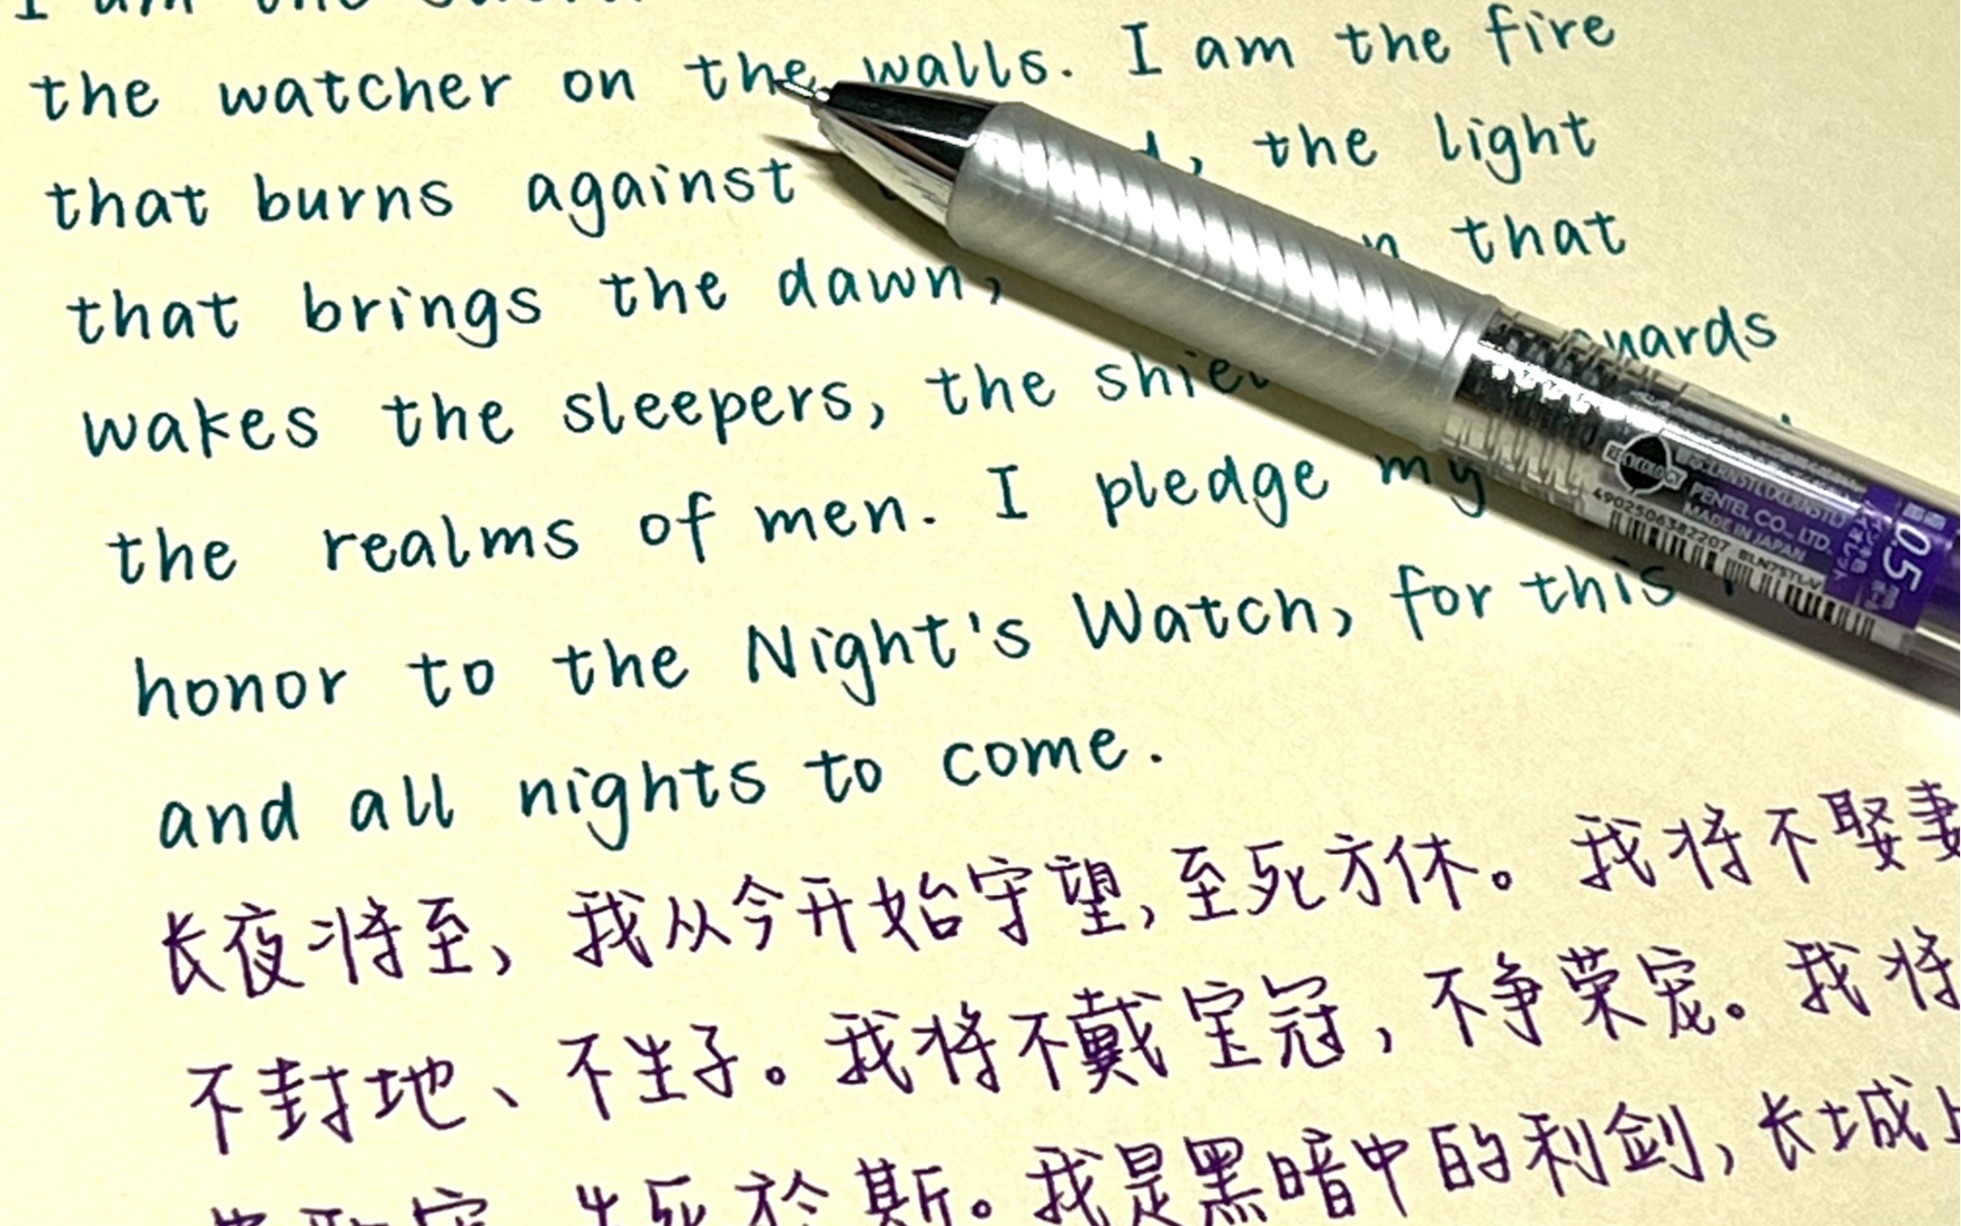 I am the
the watcher on the walls. I am the fire
that burns against , the light
that brings the dawn, that
wakes the sleepers, the
the realms of men. I pledge my
honor to the Night's Watch, for this
and all nights to come.
长夜将至，我从今开始守望，至死方休。我将不娶妻
不封地、不生子。我将不戴宝冠，不争荣宠。我将
生死於斯。我是黑暗中的利剑，长城上
RECYCOLOGY
PENTEL CO., LTD.
MADE IN JAPAN
4902506382207 BLN75TL-V
0.5